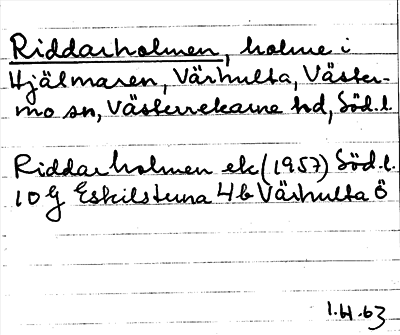 Riddarholmen, holme i
Hjälmaren, Värhulta, Väster-
mo sn, Västerrekarne hd, Söd.l.
Riddarholmen ek (1957) Söd.l.
10 G Eskilstuna 4b Värhulta Ö
1.H.63